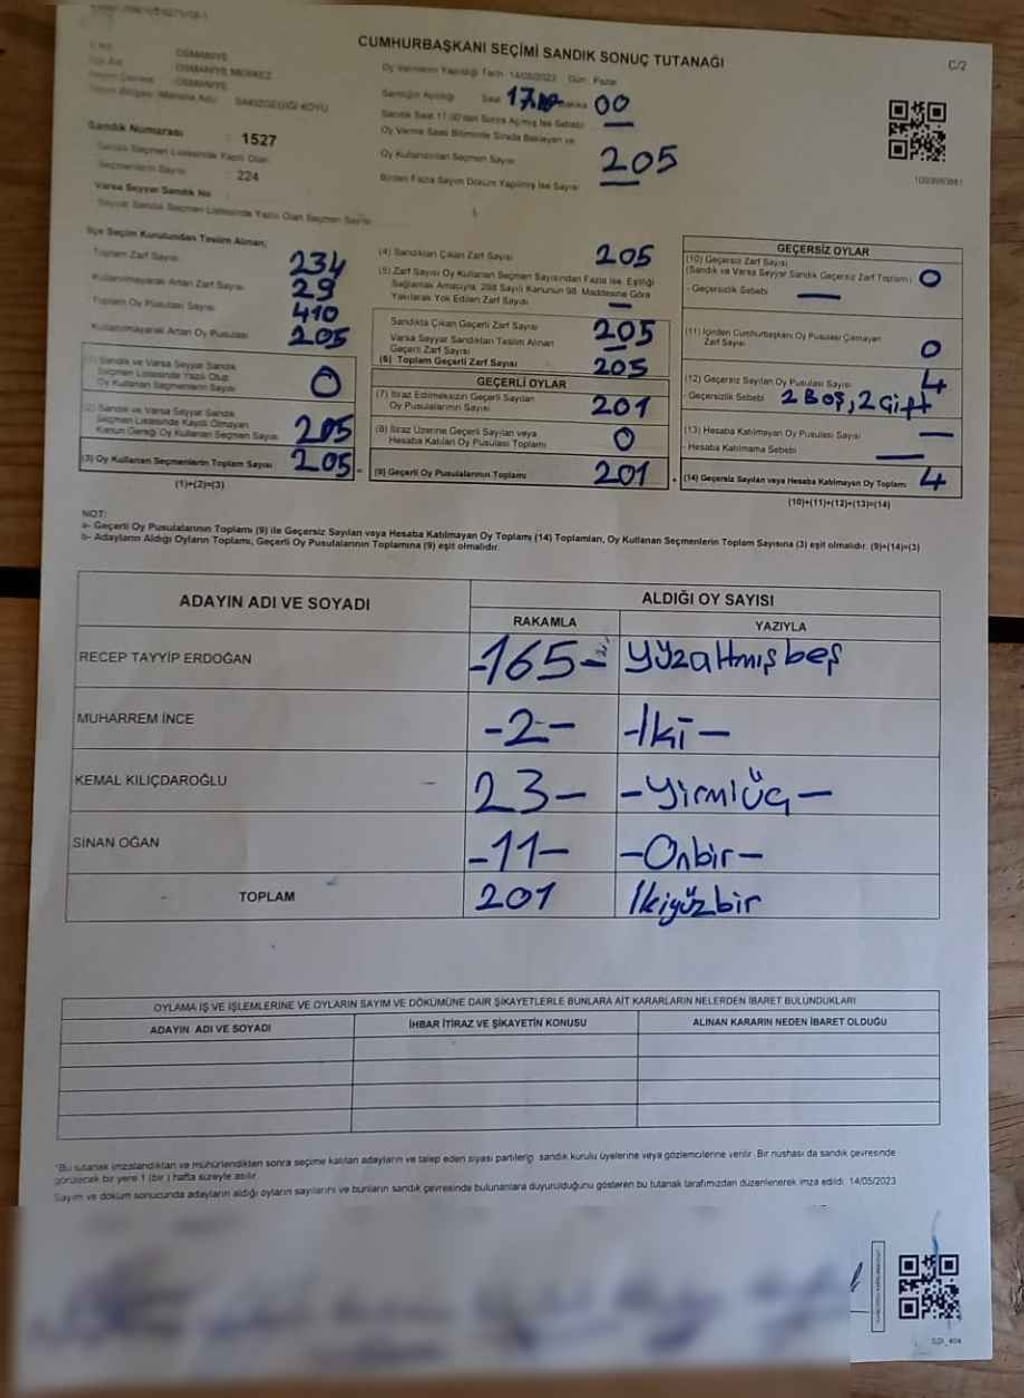 CUMHURBAŞKANI SEÇİMİ SANDIK SONUÇ TUTANAĞI
C/2
OSMANİYE
OSMANİYE MERKEZ
OSMANİYE
SAKIZGEDİĞİ KÖYÜ
Oy Vermenin Yapıldığı Tarih 14/05/2023 Gün Pazar
Sandığın Açıldığı Saat 17.00 00
Sandık Saat 17.00'dan Sonra Açılmış İse Sebebi
Oy Verme Saati Bitiminde Sırada Bekleyen ve
Oy Kullandırılan Seçmen Sayısı 205
Birden Fazla Sayım Döküm Yapılmış İse Sayısı
Sandık Numarası : 1527
Sandık Seçmen Listesinde Yazılı Olan
Seçmenlerin Sayısı 224
Varsa Seyyar Sandık No
Seyyar Sandık Seçmen Listesinde Yazılı Olan Seçmen Sayısı
İlçe Seçim Kurulundan Teslim Alınan;
Toplam Zarf Sayısı 234
Kullanılmayarak Artan Zarf Sayısı 29
Toplam Oy Pusulası Sayısı 410
Kullanılmayarak Artan Oy Pusulası 205
(1) Sandık ve Varsa Seyyar Sandık
Seçmen Listesinde Yazılı Olup
Oy Kullanan Seçmenlerin Sayısı 0
(2) Sandık ve Varsa Seyyar Sandık
Seçmen Listesinde Kayıtlı Olmayan
Kanun Gereği Oy Kullanan Seçmen Sayısı 205
(3) Oy Kullanan Seçmenlerin Toplam Sayısı 205
(1)+(2)=(3)
(4) Sandıktan Çıkan Zarf Sayısı 205
(5) Zarf Sayısı Oy Kullanan Seçmen Sayısından Fazla İse, Eşitliği
Sağlamak Amacıyla, 298 Sayılı Kanunun 98. Maddesine Göre
Yakılarak Yok Edilen Zarf Sayısı —
Sandıkta Çıkan Geçerli Zarf Sayısı 205
Varsa Seyyar Sandıktan Teslim Alınan
Geçerli Zarf Sayısı
(6) Toplam Geçerli Zarf Sayısı 205
GEÇERLİ OYLAR
(7) İtiraz Edilmeksizin Geçerli Sayılan
Oy Pusulalarının Sayısı 201
(8) İtiraz Üzerine Geçerli Sayılan veya
Hesaba Katılan Oy Pusulası Toplamı 0
(9) Geçerli Oy Pusulalarının Toplamı 201
GEÇERSİZ OYLAR
(10) Geçersiz Zarf Sayısı
(Sandık ve Varsa Seyyar Sandık Geçersiz Zarf Toplamı) 0
- Geçersizlik Sebebi —
(11) İçinden Cumhurbaşkanı Oy Pusulası Çıkmayan
Zarf Sayısı 0
(12) Geçersiz Sayılan Oy Pusulası Sayısı 4
- Geçersizlik Sebebi 2 BOŞ, 2 Çift
(13) Hesaba Katılmayan Oy Pusulası Sayısı —
- Hesaba Katılmama Sebebi —
(14) Geçersiz Sayılan veya Hesaba Katılmayan Oy Toplamı 4
(10)+(11)+(12)+(13)=(14)
NOT:
a- Geçerli Oy Pusulalarının Toplamı (9) ile Geçersiz Sayılan veya Hesaba Katılmayan Oy Toplamı (14) Toplamları, Oy Kullanan Seçmenlerin Toplam Sayısına (3) eşit olmalıdır. (9)+(14)=(3)
b- Adayların Aldığı Oyların Toplamı, Geçerli Oy Pusulalarının Toplamına (9) eşit olmalıdır.
ADAYIN ADI VE SOYADI
ALDIĞI OY SAYISI
RAKAMLA YAZIYLA
RECEP TAYYİP ERDOĞAN -165- Yüzaltmışbeş
MUHARREM İNCE -2- -İki-
KEMAL KILIÇDAROĞLU 23- -Yirmiüç-
SİNAN OĞAN -11- -Onbir-
TOPLAM 201 İkiyüzbir
OYLAMA İŞ VE İŞLEMLERİNE VE OYLARIN SAYIM VE DÖKÜMÜNE DAİR ŞİKAYETLERLE BUNLARA AİT KARARLARIN NELERDEN İBARET BULUNDUKLARI
ADAYIN ADI VE SOYADI İHBAR İTİRAZ VE ŞİKAYETİN KONUSU ALINAN KARARIN NEDEN İBARET OLDUĞU
*Bu tutanak imzalandıktan ve mühürlendikten sonra seçime katılan adayların ve talep eden siyasi partilerin sandık kurulu üyelerine veya gözlemcilerine verilir. Bir nüshası da sandık çevresinde
görülecek bir yere 1 (bir) hafta süreyle asılır.
Sayım ve döküm sonucunda adayların aldığı oyların sayılarını ve bunların sandık çevresinde bulunanlara duyurulduğunu gösteren bu tutanak tarafımızdan düzenlenerek imza edildi. 14/05/2023